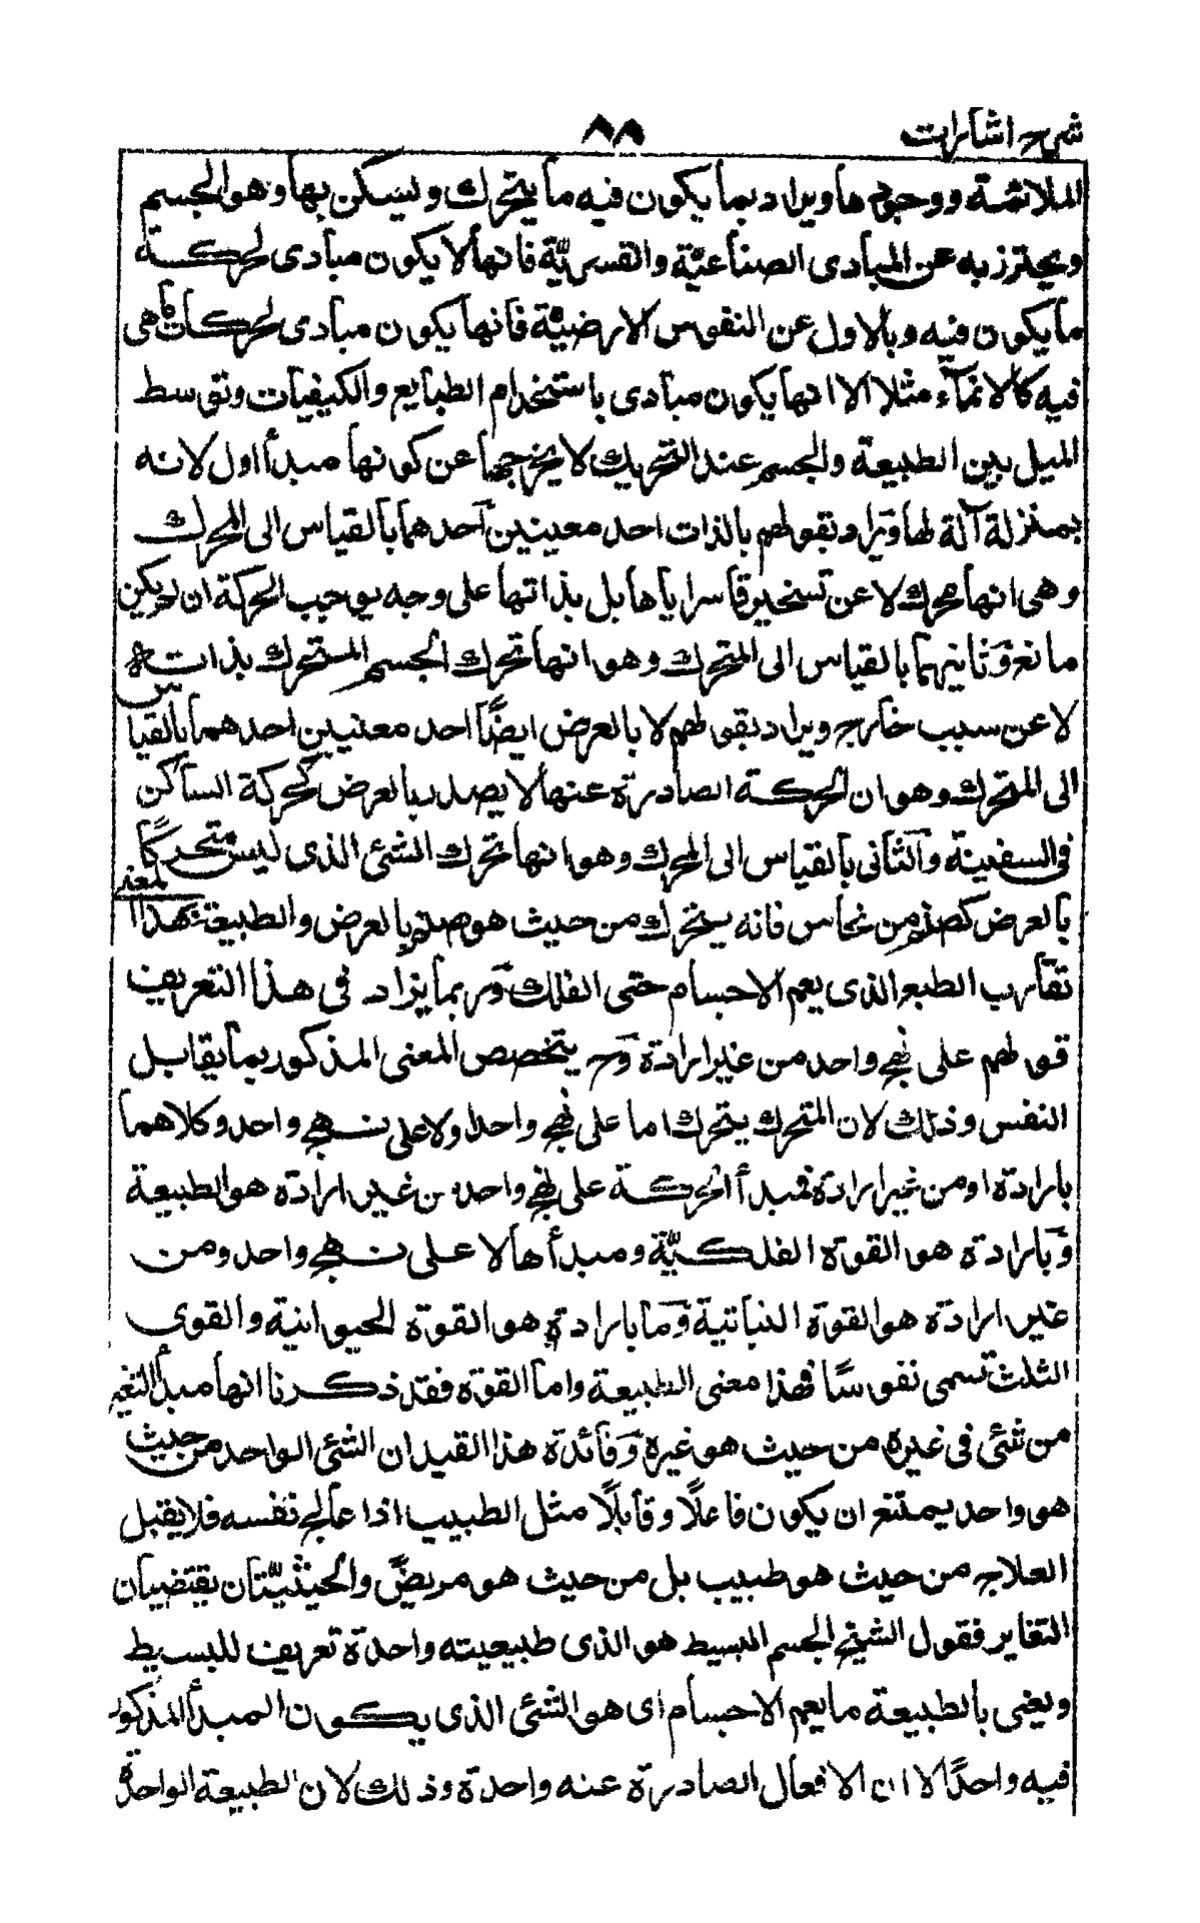 شرح اشارات
٨٨
الملائمة ووجودها ويراد بما يكون فيه ما يتحرك ويسكن بها وهو الجسم
ويحترز به عن المبادى الصناعيّة والقسريّة فانها لا يكون مبادى لحركة
ما يكون فيه وبالاول عن النفوس الارضيّة فانها يكون مبادى لحركات ما هى
فيه كالانمآء مثلا الا انها يكون مبادى باستخدام الطبايع والكيفيات وتوسط
الميل بين الطبيعة والجسم عند التحريك لا يخرجها عن كونها مبدأ اول لانه
بمنزلة آلة لها ويراد بقولهم بالذات احد معينين آحدهما بالقياس الى المحرك
وهى انها محرك لا عن تسخير قاسر اياها بل بذاتها على وجه يوجب الحركة ان لم يكن
مانع وثانيهما بالقياس الى المتحرك وهو انها تحرك الجسم المتحرك بذاته
لا عن سبب خارج ويراد بقولهم لا بالعرض ايضًا احد معنيين احدهما بالقياس
الى المتحرك وهو ان الحركة الصادرة عنها لا يصدر بالعرض كحركة الساكن
فى السفينة والثانى بالقياس الى المحرك وهو انها تحرك الشئ الذى ليس متحركًا
بالعرض كصنم من نحاس فانه يتحرك من حيث هو صنم بالعرض والطبيعة بهذا المعنى
تقارب الطبع الذى يعم الاجسام حتى الفلك وربما يزاد فى هذا التعريف
قولهم على نهج واحد من غير ارادة وح يتخصص المعنى المذكور بما يقابل
النفس وذلك لان المتحرك يتحرك اما على نهج واحد او لا على نهج واحد وكلاهما
بارادة او من غير ارادة فمبدأ الحركة على نهج واحد من غير ارادة هو الطبيعة
وبارادة هو القوة الفلكيّة ومبدأها لا على نهج واحد ومن
غير ارادة هو القوة النباتية وما بارادة هو القوة الحيوانية والقوى
الثلث تسمى نفوسًا فهذا معنى الطبيعة واما القوة فقد ذكرنا انها مبدأ التغير
من شئ فى غيره من حيث هو غيره وفائدة هذا القيد ان الشئ الواحد من حيث
هو واحد يمتنع ان يكون فاعلًا وقابلًا مثل الطبيب اذا عالج نفسه فلا يقبل
العلاج من حيث هو طبيب بل من حيث هو مريض والحيثيّتان يقتضيان
التغاير فقول الشيخ الجسم البسيط هو الذى طبيعيته واحدة تعريف للبسيط
ويعنى بالطبيعة ما يعم الاجسام اى هو الشئ الذى يكون المبدأ المذكور
فيه واحدًا لا ان الافعال الصادرة عنه واحدة وذلك لان الطبيعة الواحدة